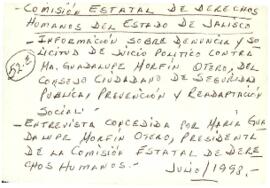 - COMISIÓN ESTATAL DE DERECHOS
HUMANOS DEL ESTADO DE JALISCO
- INFORMACIÓN SOBRE DENUNCIA Y SO
LICITUD DE JUICIO POLITICO CONTRA
MA. GUADALUPE MORFIN OTERO, DEL
CONSEJO CIUDADANO DE SEGURIDAD
PUBLICA, PREVENCIÓN Y READAPTACIÓN
SOCIAL.
- ENTREVISTA CONCEDIDA POR MARÍA GUA
DALUPE MORFIN OTERO, PRESIDENTE
DE LA COMISIÓN ESTATAL DE DERE
CHOS HUMANOS.-
JULIO/1998.-
52-E